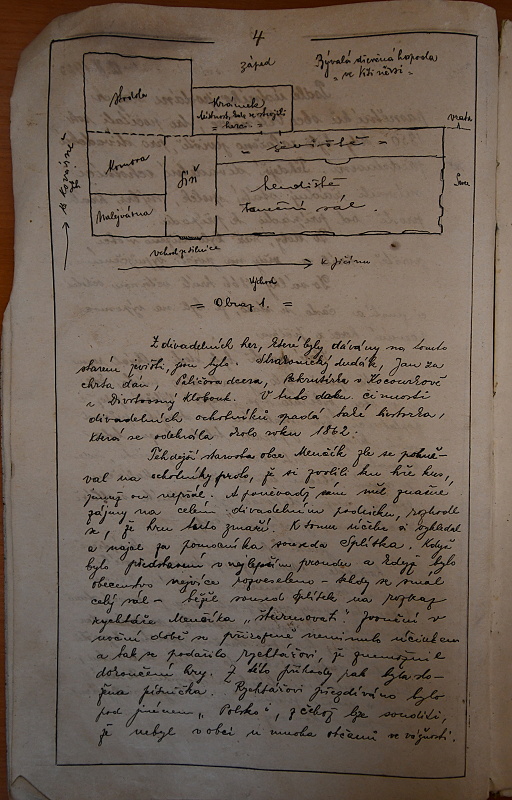 4
západ
Bývalá dřevěná hospoda
„ve Vší něbsi"
Stodola
Krámek
- jeviště -
vrata
Komora
Síň
hlediště
taneční sál.
Nalejvárna
vchod ze silnice
k Jičínu
Východ
= Obraz 1. =
Z divadelních her, které byly dávány na tomto
starém jevišti, jsou tyto: Strakonický dudák, Jan za
chrta dán, Paličova dcera, Rekrutýrka v Kocourkově
a Divotvorný klobouk. V tuto dobu činnosti
divadelních ochotníků spadá také historka,
která se odehrála kolem roku 1862:
Tehdejší starosta obce Menčík zle se pohně-
val na ochotníky proto, že si zvolili ku hře kus,
jemuž on nepřál. A poněvadž sám měl značné
zájmy na celém divadelním podniku, rozhodl
se, že hru tuto zmaří. K tomu účelu si vyhledal
a najal za pomocníka souseda Splítka. Když
bylo představení v nejlepším proudu a když bylo
obecenstvo nejvíce rozveseleno - tehdy se smál
celý sál - běžel soused Splítek na rozkaz
rychtáře Menčíka „šturmovati". Zvonění v
noční době se přirozeně neminulo účinkem
a tak se podařilo rychtářovi, že znemožnil
dokončení hry. Z této příhody pak byla slo-
žena písnička. Rychtářovi přezdíváno bylo
pod jménem „Polsko", z čehož lze souditi,
že nebyl v obci u mnoha občanů ve vážnosti.